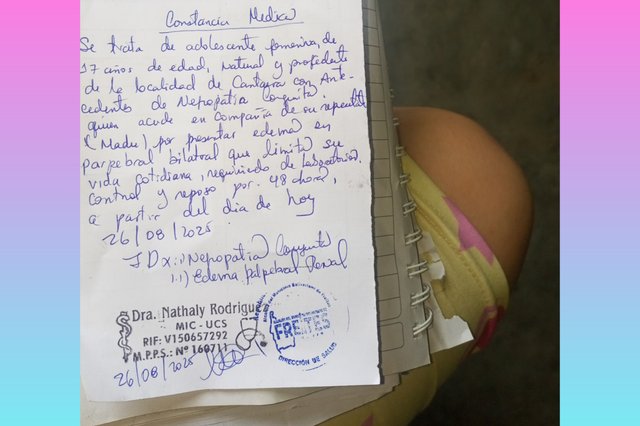 Constancia Medica
Se trata de adolescente femenina, de
17 años de edad, Natural y profedente
de la localidad de Cantaura con Ante-
cedentes de Nefropatia Congnita.
quien acude en compañia de su
(Madre) por presentar edema en
parpebral bilatral que limita su
vida cotidiana, requiriendo de Laboratorios,
control y reposo por 48 horas,
a partir del dia de hoy
26/08/2025
IDx: 1) Nefropatia Congnita
1.1) Edema palpebral Renal
Dra. Nathaly Rodriguez
MIC - UCS
RIF: V150657292
M.P.P.S.: Nº 160712
26/08/2025
FRE
DIRECCIÓN DE SALUD